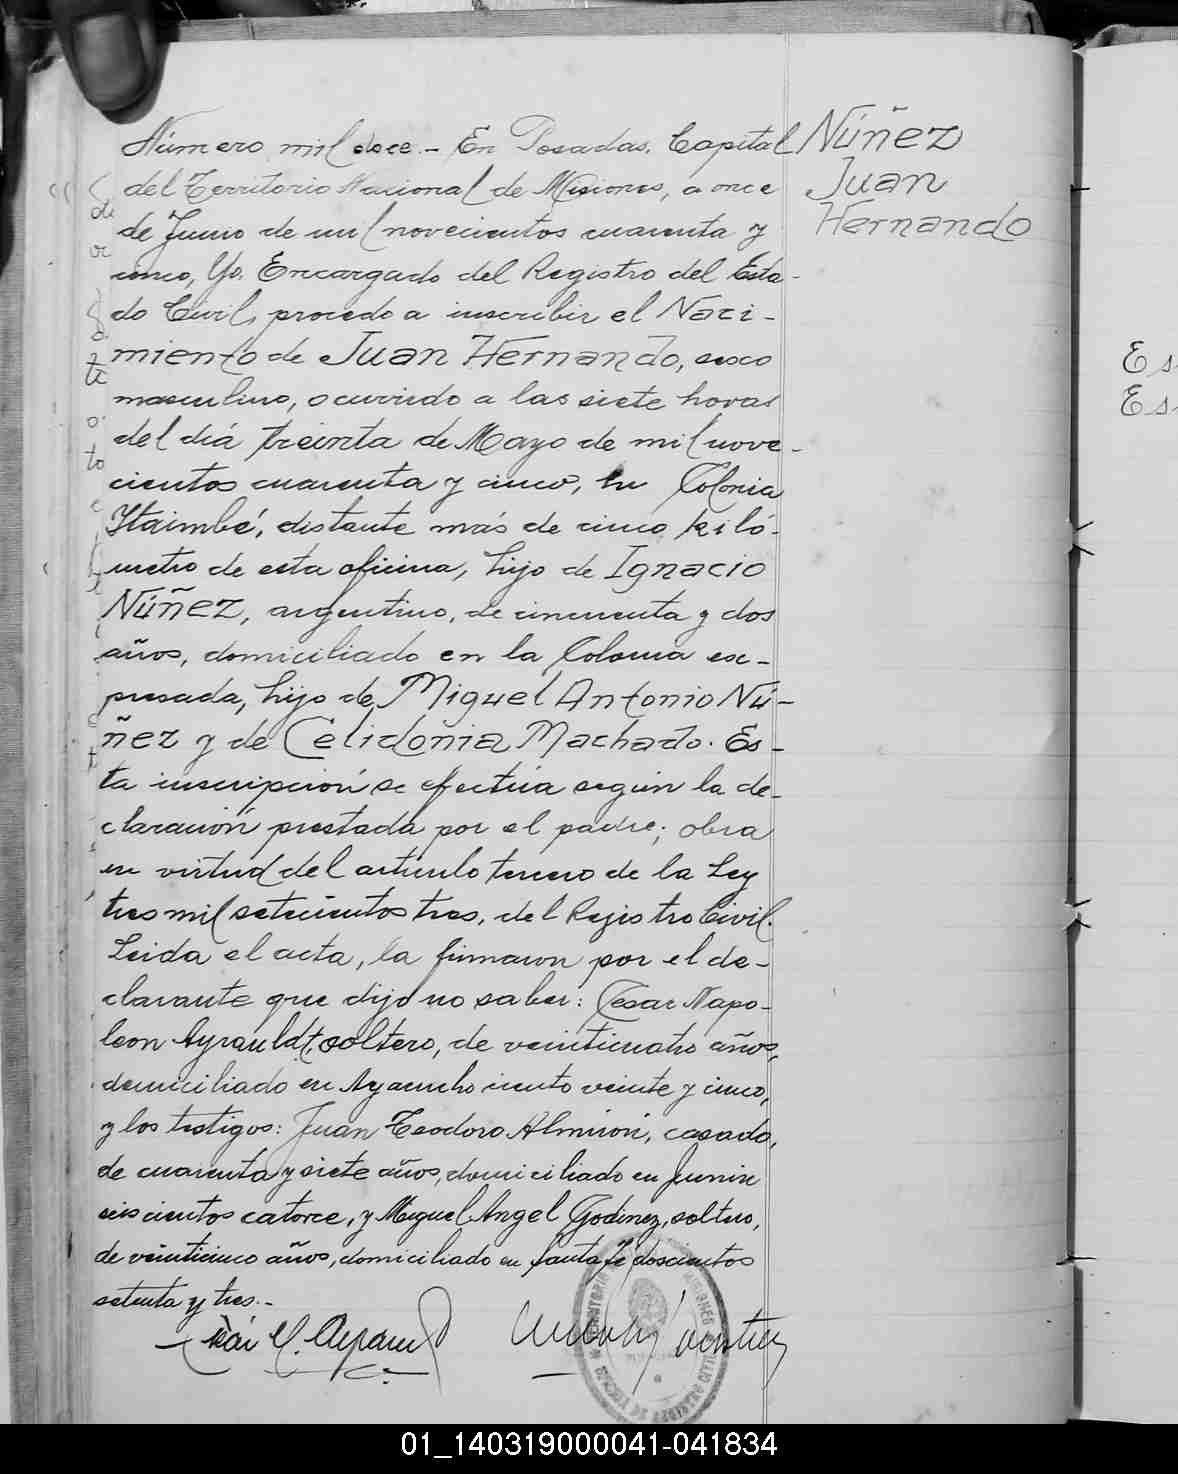 Número mil doce.- En Posadas, Capital
del Territorio Nacional de Misiones, a once
de Junio de mil novecientos cuarenta y
cinco, Yo, Encargado del Registro del Esta-
do Civil, procedo a inscribir el Naci-
miento de Juan Hernando, sexo
masculino, ocurrido a las siete horas
del diá treinta de Mayo de mil nove-
cientos cuarenta y cinco, en Colonia
Itaimbé, distante más de cinco kiló-
metro de esta oficina, hijo de Ignacio
Núñez, argentino, de cincuenta y dos
años, domiciliado en la Colonia ex-
presada, hijo de Miguel Antonio Nú-
ñez y de Celidonia Machado. Es-
ta inscripción se efectúa según la de-
claración prestada por el padre; obra
en virtud del artículo tercero de la Ley
tres mil setecientos tres, del Registro Civil.
Leida el acta, la firmaron por el de-
clarante que dijo no saber: Cesar Napo-
leon Ayrauldt, soltero, de veinticuatro años,
domiciliado en Ayacucho ciento veinte y cinco,
y los testigos: Juan Teodoro Almirón, casado,
de cuarenta y siete años, domiciliado en Junin
seiscientos catorce, y Miguel Angel Godinez, soltero,
de veinticinco años, domiciliado en Santa Fé doscientos
setenta y tres.-
Núñez
Juan
Hernando
Es
Es
01_140319000041-041834